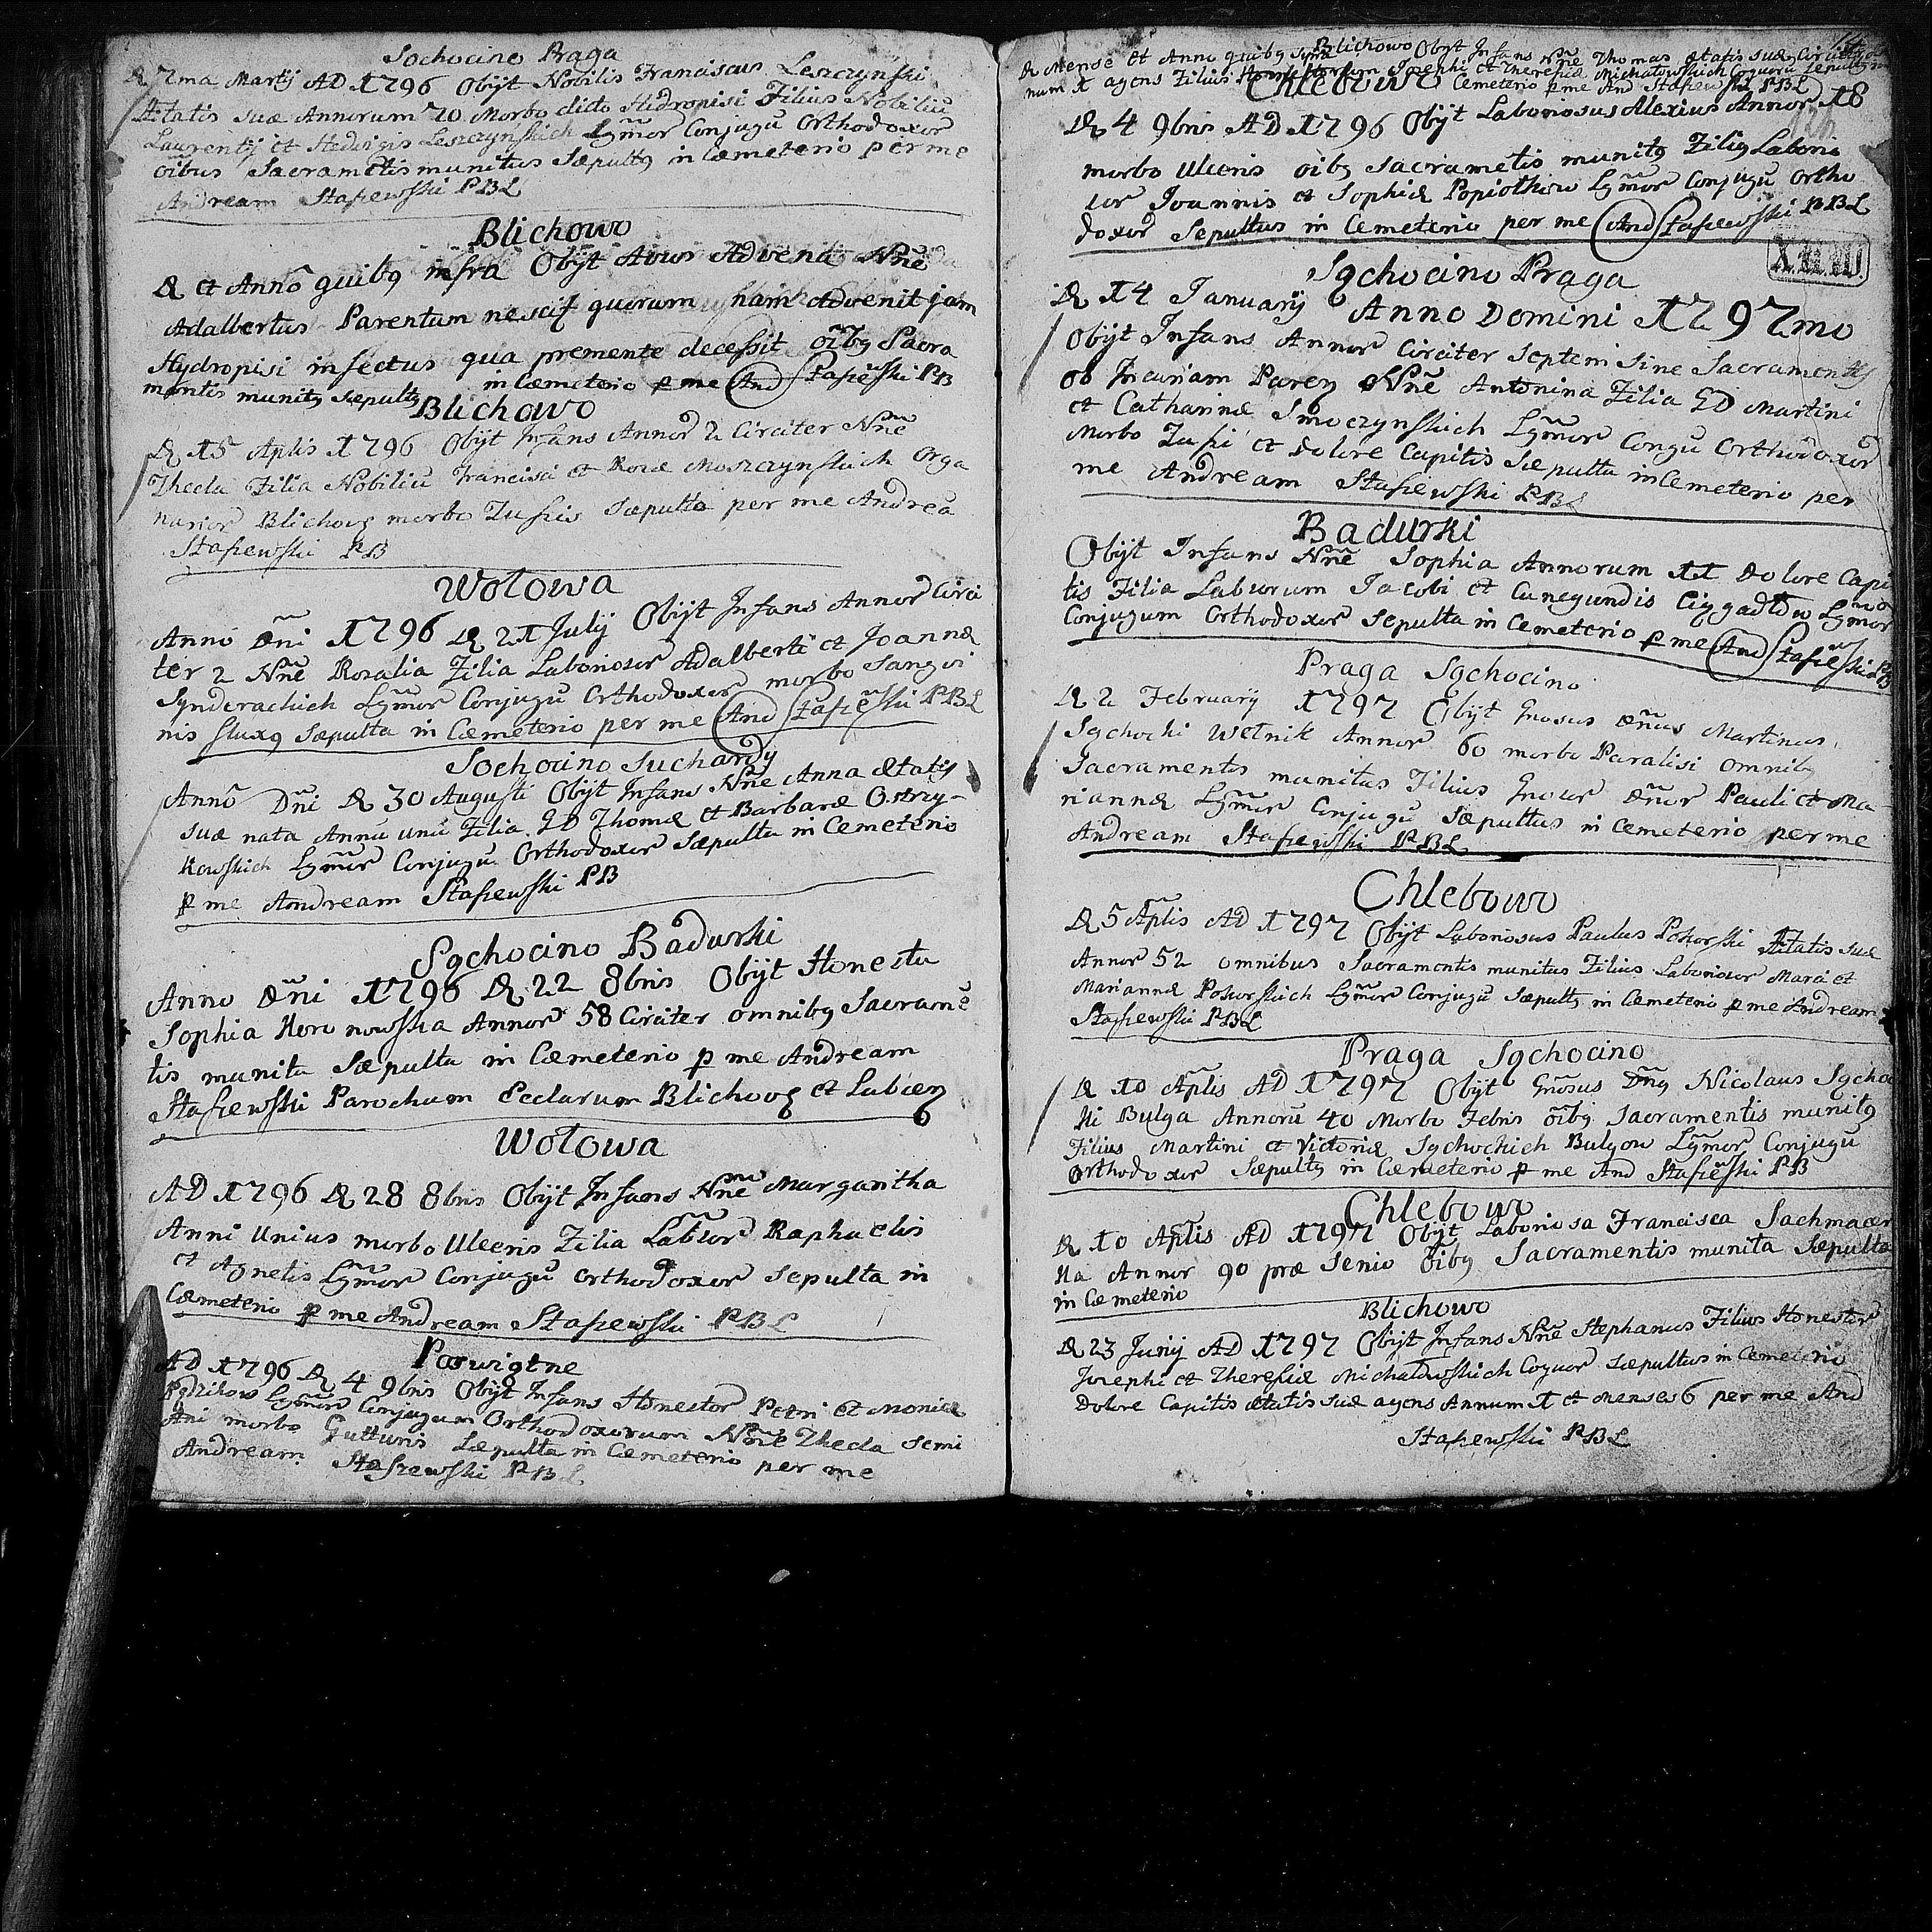 Sochocino Praga
D 7ma Martij AD 1796 Obijt Nobilis Franciscus Leszczynski
Ætatis suæ Annorum 70 Morbo dicto Hidropisi Filius Nobiliū
Laurentij et Hedvigis Leszczynskich Lgm̃or Conjugū Orthodoxor
oĩbus Sacrametis munitus Sæpultg in Cæmeterio per me
Andream Stasiewski PBL
Blichowo
D et Annõ quibg infra Obijt Advena Nñe
Adalbertus Parentum nescit quorum nam Advenit jam
Hydropisi infectus qua premente decessit oĩbg Sacra
mentis munitg sæpultg in Cæmeterio p me And Stasiewski PB
Blichowo
D 15 Aplis 1796 Obijt Infans Annor 2 Circiter Nñe
Thecla Filia Nobiliū Francisci et Rosæ Moszczynskich Orga
narior Blichovg morbo Tussis Sæpulta per me Andreã
Stasiewski PB
Wołowa
Anno Dñi 1796 D 21 Julij Obijt Infans Annor Circi
ter 2 Nñe Rosalia Filia Laboriosor Adalberti et Joannæ
Synderackich Lgm̃or Conjugū Orthodoxor morbo Sangvi
nis fluxg Sæpulta in Cæmeterio per me And Stasiewski PBL
Sochocino Suchardy
Annõ Dñi D 30 Augusti Obijt Infans Nñe Anna ætatis
suæ nata Annū unū Filia GD Thomæ et Barbaræ Ostrzy-
kowskich Lgm̃or Conjugū Orthodoxor Sæpulta in Cemeterio
p me Andream Stasiewski PB
Sgchocino Badurki
Anno Dñi 1796 D 22 8bris Obijt Honesta
Sophia Annor 58 Circiter omnibg Sacramẽ
tis munita Sæpulta in Cæmeterio p me Andream
Stasiewski Parochum Ecclarum Blichovg et Lubieg
Wołowa
AD 1796 D 28 8bris Obijt Infans Nñe Margaritha
Anni Unius morbo Ulceris Filia Labior Raphaelis
et Agnetis Lgm̃or Conjugū Orthodoxor Sepulta in
Cæmeterio p me Andream Stasiewski PBL
AD 1796 D 4 9bris Obijt Infans Honestor Petri et Monicæ
Lgm̃or Conjugum Orthodoxorum Nñe Thecla Semi
Ani morbo Gutturis Sæpulta in Cæmeterio per me
Andream Stasiewski PBL
Blichowo
D Mense et Anno quibg Supra Obijt Infans Nñe Thomas ætatis suæ Circiter
num 1 agens Filius Honestorum Josephi et Theresiæ Michałowskich
Cemeterio p me And Stasiewski PBL
Chlebowo
D 4 9bris AD 1796 Obijt Laboriosus Alexius Annor 18
morbo Ulceris oibg Sacrametis munitg Filig Labori
sor Joannis et Sophiæ Lgm̃or Conjugū Ortho
doxor Sepultus in Cemeterio per me And Stasiewski PBL
Sgchocino Praga
D 14 Januarij Anno Domini 1797mo
Obijt Infans Annor Circiter Septem Sine Sacramentis
ob Incuriam Pareg Nñe Antonina Filia GD Martini
et Catharinæ Smoczynskich Lgm̃or Congū Orthodoxor
Morbo Tussi et dolore Capitis Sæpulta in Cemeterio per
me Andream Stasiewski PBL
Badurki
Obijt Infans Nñe Sophia Annorum 11 Dolore Capi
tis Filia Laborum Jacobi et Cunegundis Lgm̃or
Conjugum Orthodoxor Sepulta in Cemeterio p me And Stasiewski PB
Praga Sgchocino
D 2 February 1797 Obijt Gnosus Dñus Martinus
Sgchocki Wetnik Annor 60 morbo Paralisi omnibg
Sacramentis munitus Filius Gnosor Dñor Pauli et Ma
riannæ Lgm̃or Conjugū Sæpultus in Cemeterio per me
Andream Stasiewski PBL
Chlebowo
D 5 Aplis AD 1797 Obijt Laboriosus Paulus Pokorski Ætatis suæ
Annor 52 omnibus Sacramentis munitus Filius Laboriosor Marci et
Mariannæ Pokorskich Lgm̃or Conjugū Sæpultg in Cæmeterio p me Andream
Stasiewski PBL
Praga Sgchocino
D 10 Aplis AD 1797 Obijt Gñosus Dñg Nicolaus Sgchoc
ki Bulga Annorū 40 Morbo Febris oĩbg Sacramentis munitg
Filius Martini et Victoriæ Sgchockich Bulgow Lgm̃or Conjugū
Orthodoxor Sæpultg in Cæmeterio p me And Stasiewski PB
Chlebowo
D 10 Aplis AD 1797 Obijt Laboriosa Francisca
ka Annor 90 præ Senio oĩbg Sacramentis munita Sæpulta
in Cæmeterio
Blichowo
D 23 Junij AD 1797 Obijt Infans Nñe Stephanus Filius Honestor
Josephi et Theresiæ Michałowskich Coguor sæpultus in Cemeterio
Dolore Capitis ætatis suæ agens Annum 1 et menses 6 per me And
Stasiewski PBL